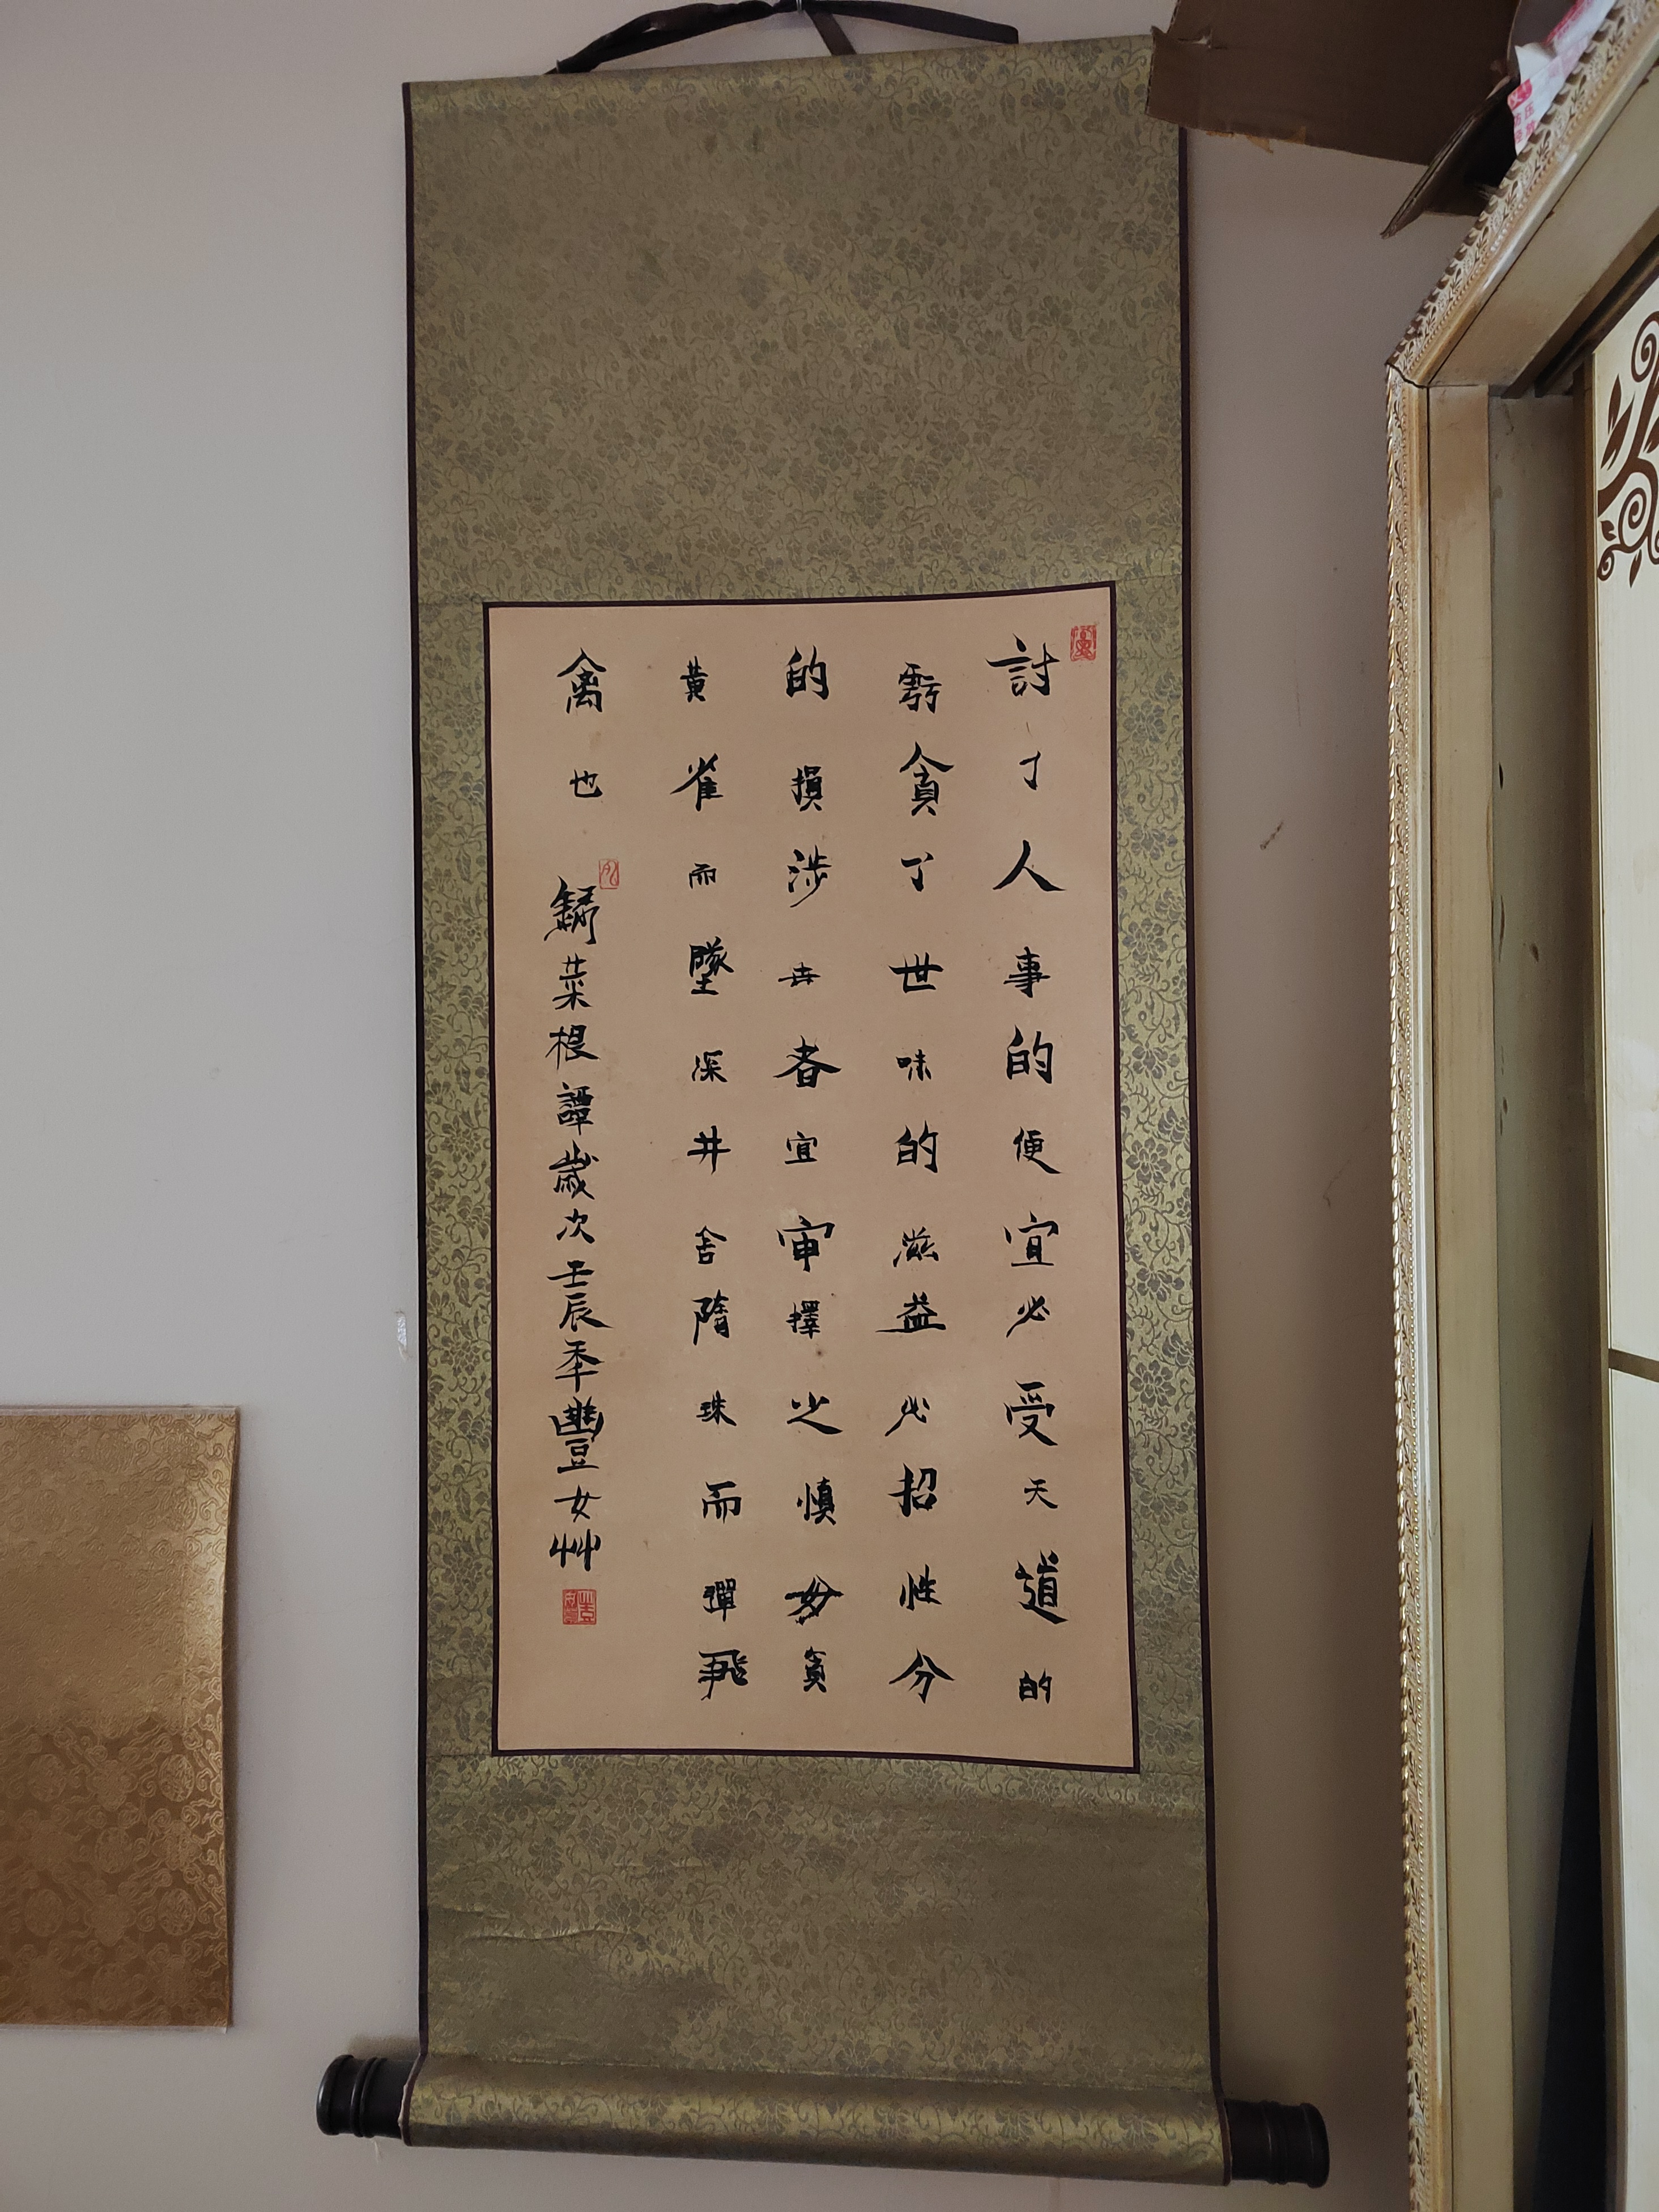 討了人事的便宜必受天道的
虧貪了世味的滋益必招性分
的損涉世者宜审擇之慎毋貪
黃雀而墜深井舍隋珠而彈飛
禽也
錄菜根譚歲次壬辰年豐女艸